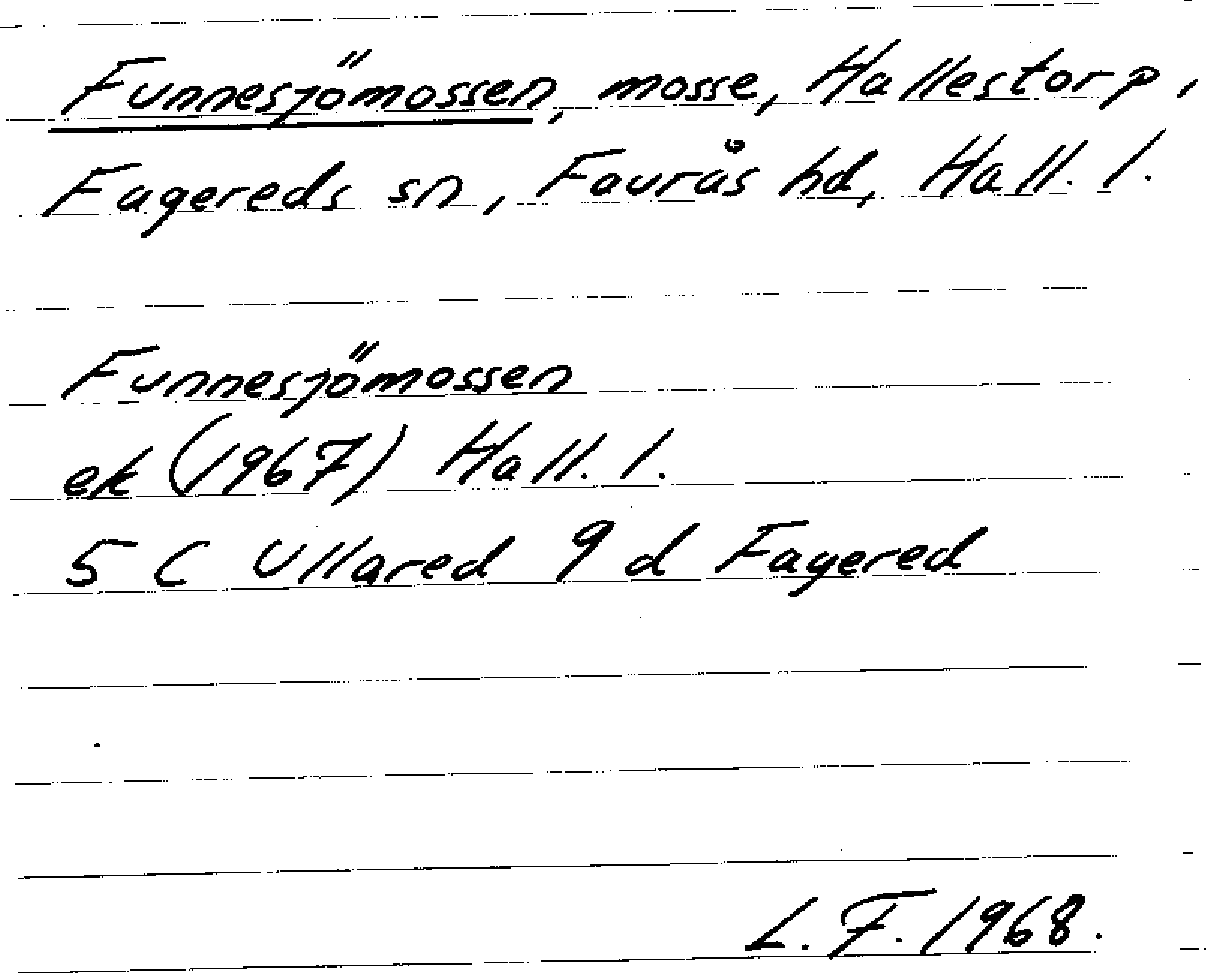 Funnesjömossen, mosse, Hallestorp,
Fagereds sn, Faurås hd, Hall. l.
Funnesjömossen
ek (1967) Hall. l.
5 C Ullared 9 d Fagered
L. F. 1968.